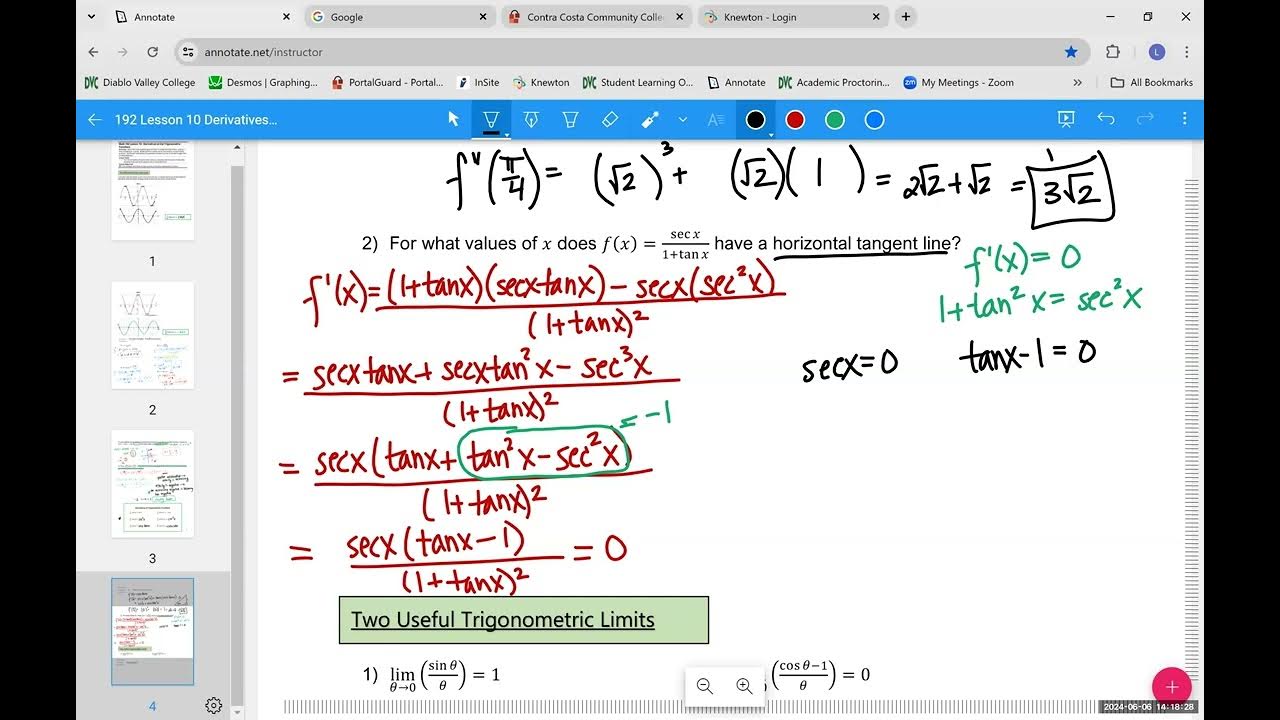 Annotate
Google
Contra Costa Community Colle
Knewton - Login
annotate.net/instructor
L
DVC Diablo Valley College
Desmos | Graphing...
PortalGuard - Portal...
InSite
Knewton
DVC Student Learning O...
Annotate
DVC Academic Proctorin...
zm My Meetings - Zoom
All Bookmarks
192 Lesson 10 Derivatives...
f''(π/4) = (√2)³ + (√2)(1) = 2√2 + √2 = 3√2
2) For what values of x does f(x) = sec x / 1+tan x have a horizontal tangent line?
f'(x) = 0
f'(x) = (1+tanx)(secxtanx) − secx(sec²x) / (1+tanx)²
1+tan²x = sec²x
secx = 0 tanx−1 = 0
= secxtanx + secxtan²x − sec³x / (1+tanx)²
= −1
= secx(tanx + tan²x − sec²x) / (1+tanx)²
= secx(tanx − 1) / (1+tanx)² = 0
Two Useful Trigonometric Limits
1) lim θ→0 (sin θ / θ) = 1
(cos θ−1 / θ) = 0
1
2
3
4
2024-06-06 14:18:28